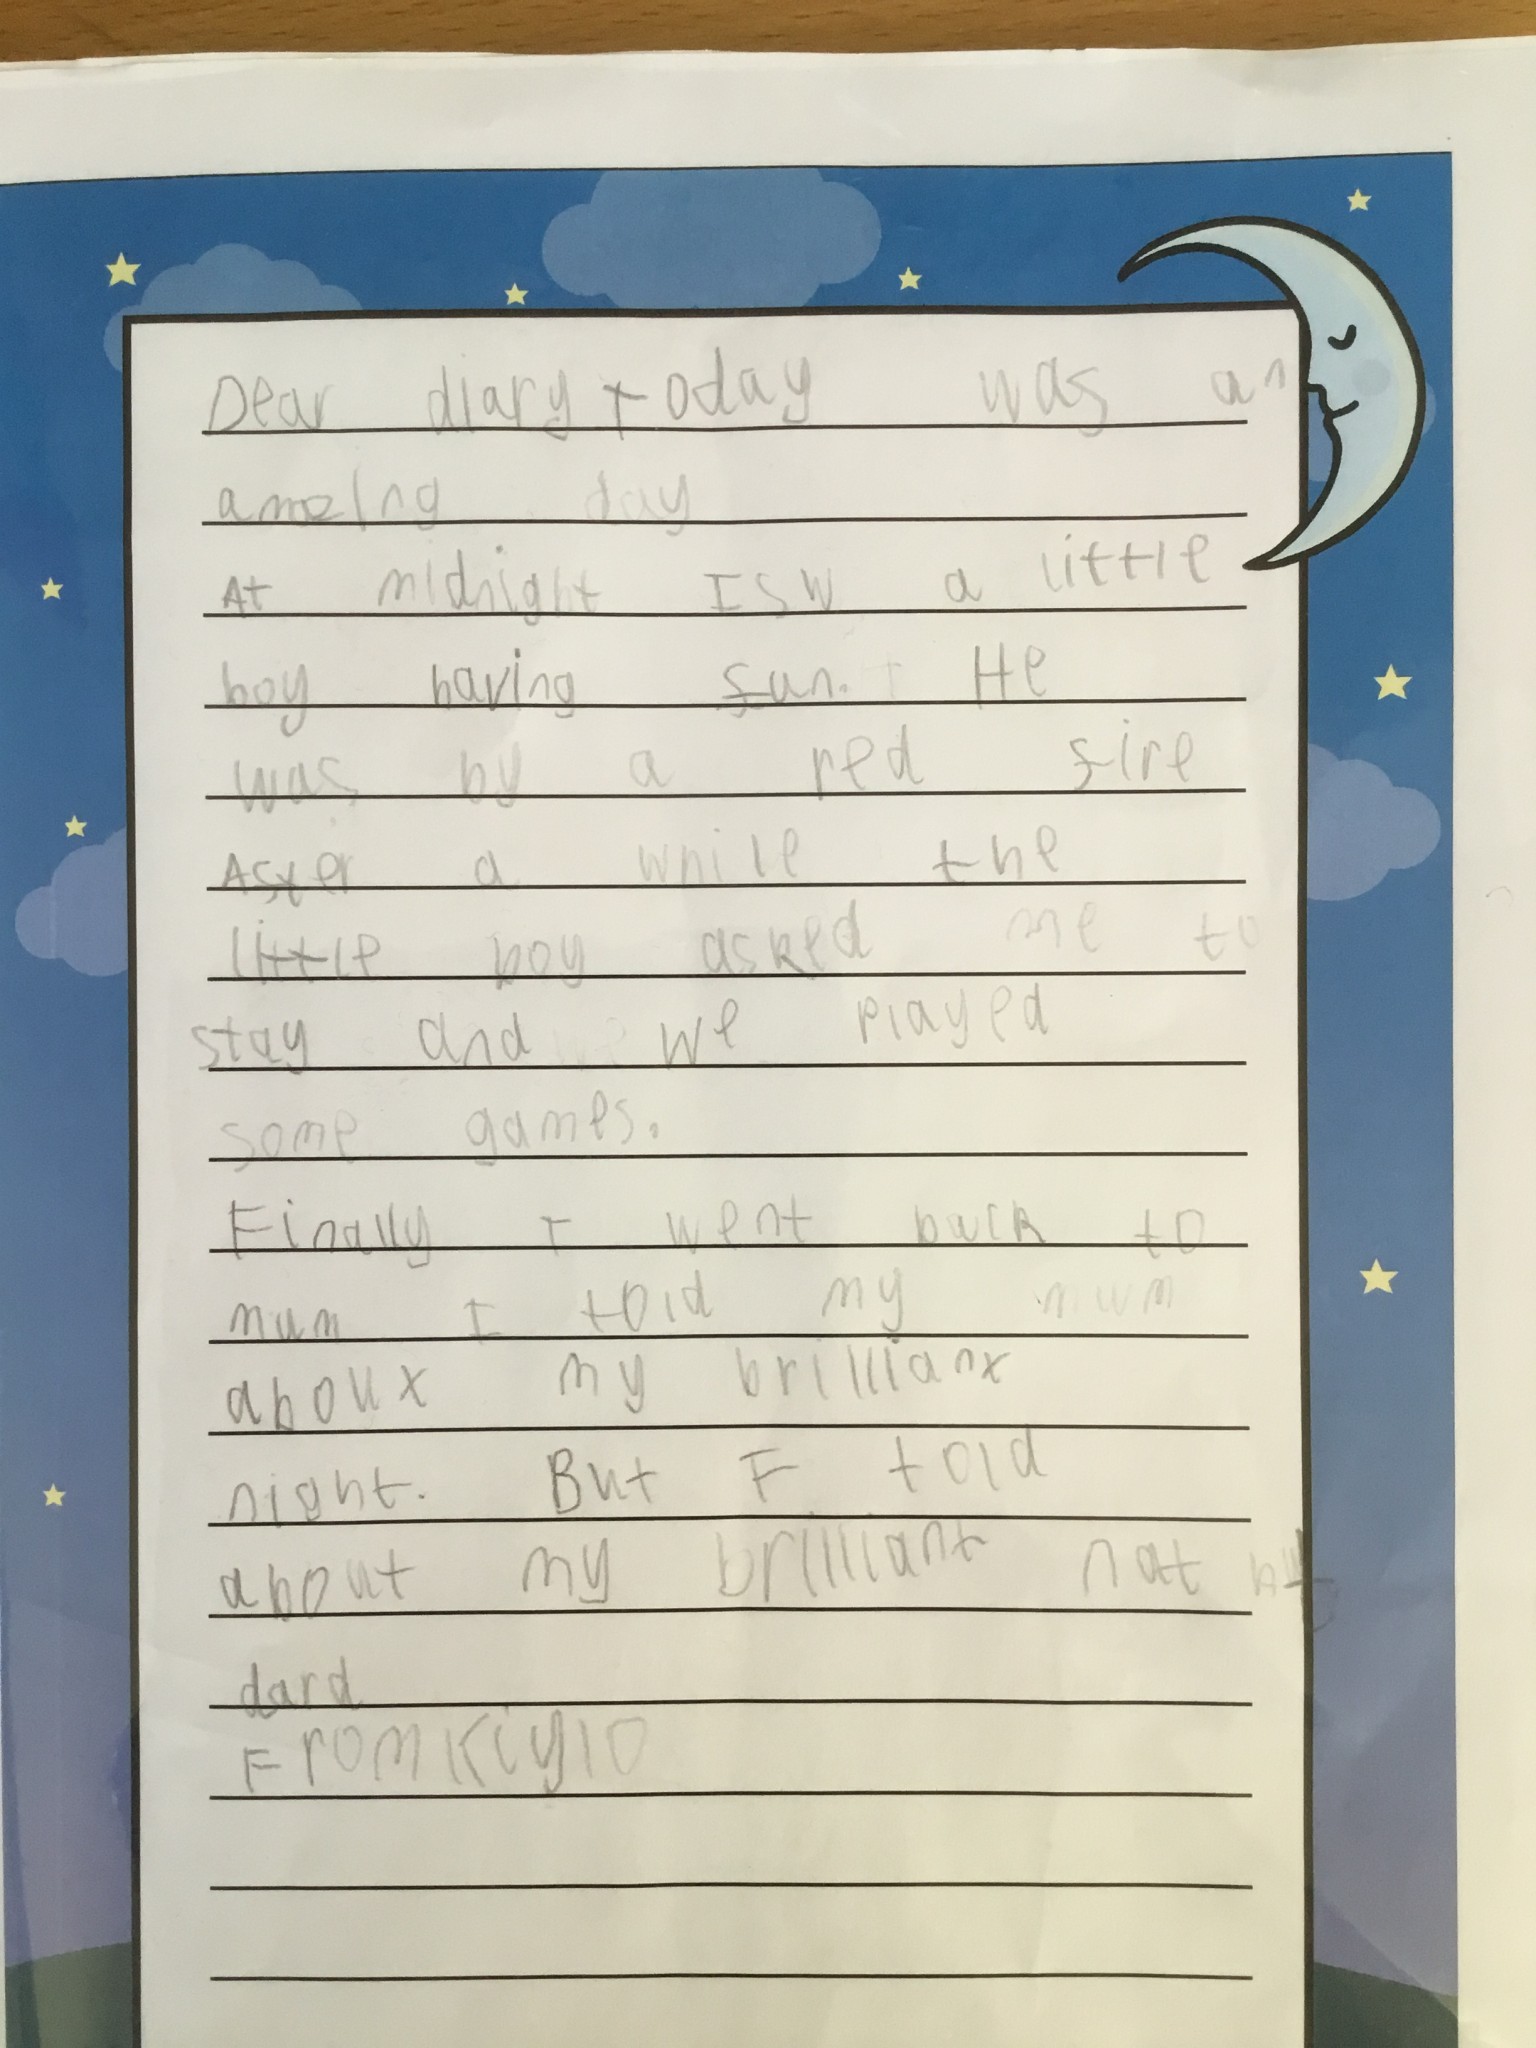 Dear diary today was an
amozing day
At midnight I sw a little
boy having fun. He
was by a red fire
After a while the
little boy asked me to
stay and we played
some games.
Finally I went back to
mum I told my mum
about my brilliant
night. But I told
about my brilliant nat
dard
From Kiylo